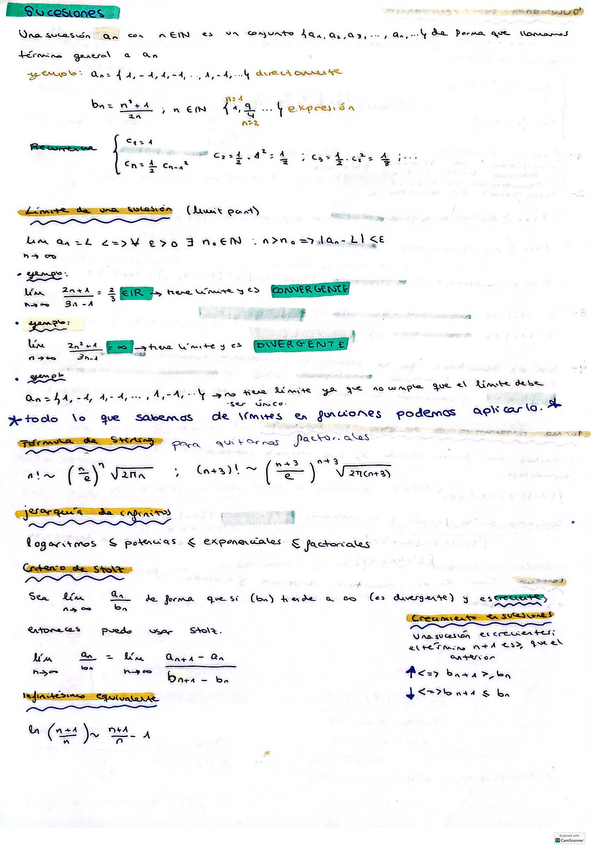 Sucesiones
Una sucesión an con n∈IN es un conjunto {a1, a2, a3, ..., an, ...} de forma que llamamos
término general a an
ejemplo: an = {1, -1, 1, -1, ..., 1, -1, ...} directamente
bn = n³+1 / 2n ; n∈IN {1, 9/4 ...} expresión
n=1
n=2
Recurrencia { c1 = 1
cn = 1/2 cn-1² c2 = 1/2 · 1² = 1/2 ; c3 = 1/2 · c2² = 1/8 ; ...
Límite de una sucesión
lim an = L <=> ∀ ε>0 ∃ n0∈IN : n>n0 => |an - L| < ε
n→∞
• ejemplo:
lím n→∞ 2n+1 / 3n-1 = 2/3 ∈IR → tiene límite y es CONVERGENTE
• ejemplo:
lím n→∞ 2n²+1 / 3n-1 = ∞ → tiene límite y es DIVERGENTE
• ejemplo
an = {1, -1, 1, -1, ..., 1, -1, ...} → no tiene límite ya que no cumple que el límite debe
ser único.
* todo lo que sabemos de límites en funciones podemos aplicarlo. *
Fórmula de Stirling para quitarnos factoriales
n! ~ (n/e)^n √2πn ; (n+3)! ~ (n+3/e)^n+3 √2π(n+3)
jerarquía de infinitos
logaritmos ≤ potencias ≤ exponenciales ≤ factoriales
Criterio de Stolz
Sea lím n→∞ an/bn de forma que si (bn) tiende a ∞ (es divergente) y es creciente,
entonces puedo usar Stolz.
lím n→∞ an/bn = lím n→∞ an+1 - an / bn+1 - bn
Crecimiento en sucesiones
Una sucesión es creciente si
el término n+1 es ≥ que el
anterior
↑ <=> bn+1 ≥ bn
↓ <=> bn+1 ≤ bn
Infinitésimo equivalente
ln (n+1/n) ~ n+1/n - 1
Scanned with
CamScanner